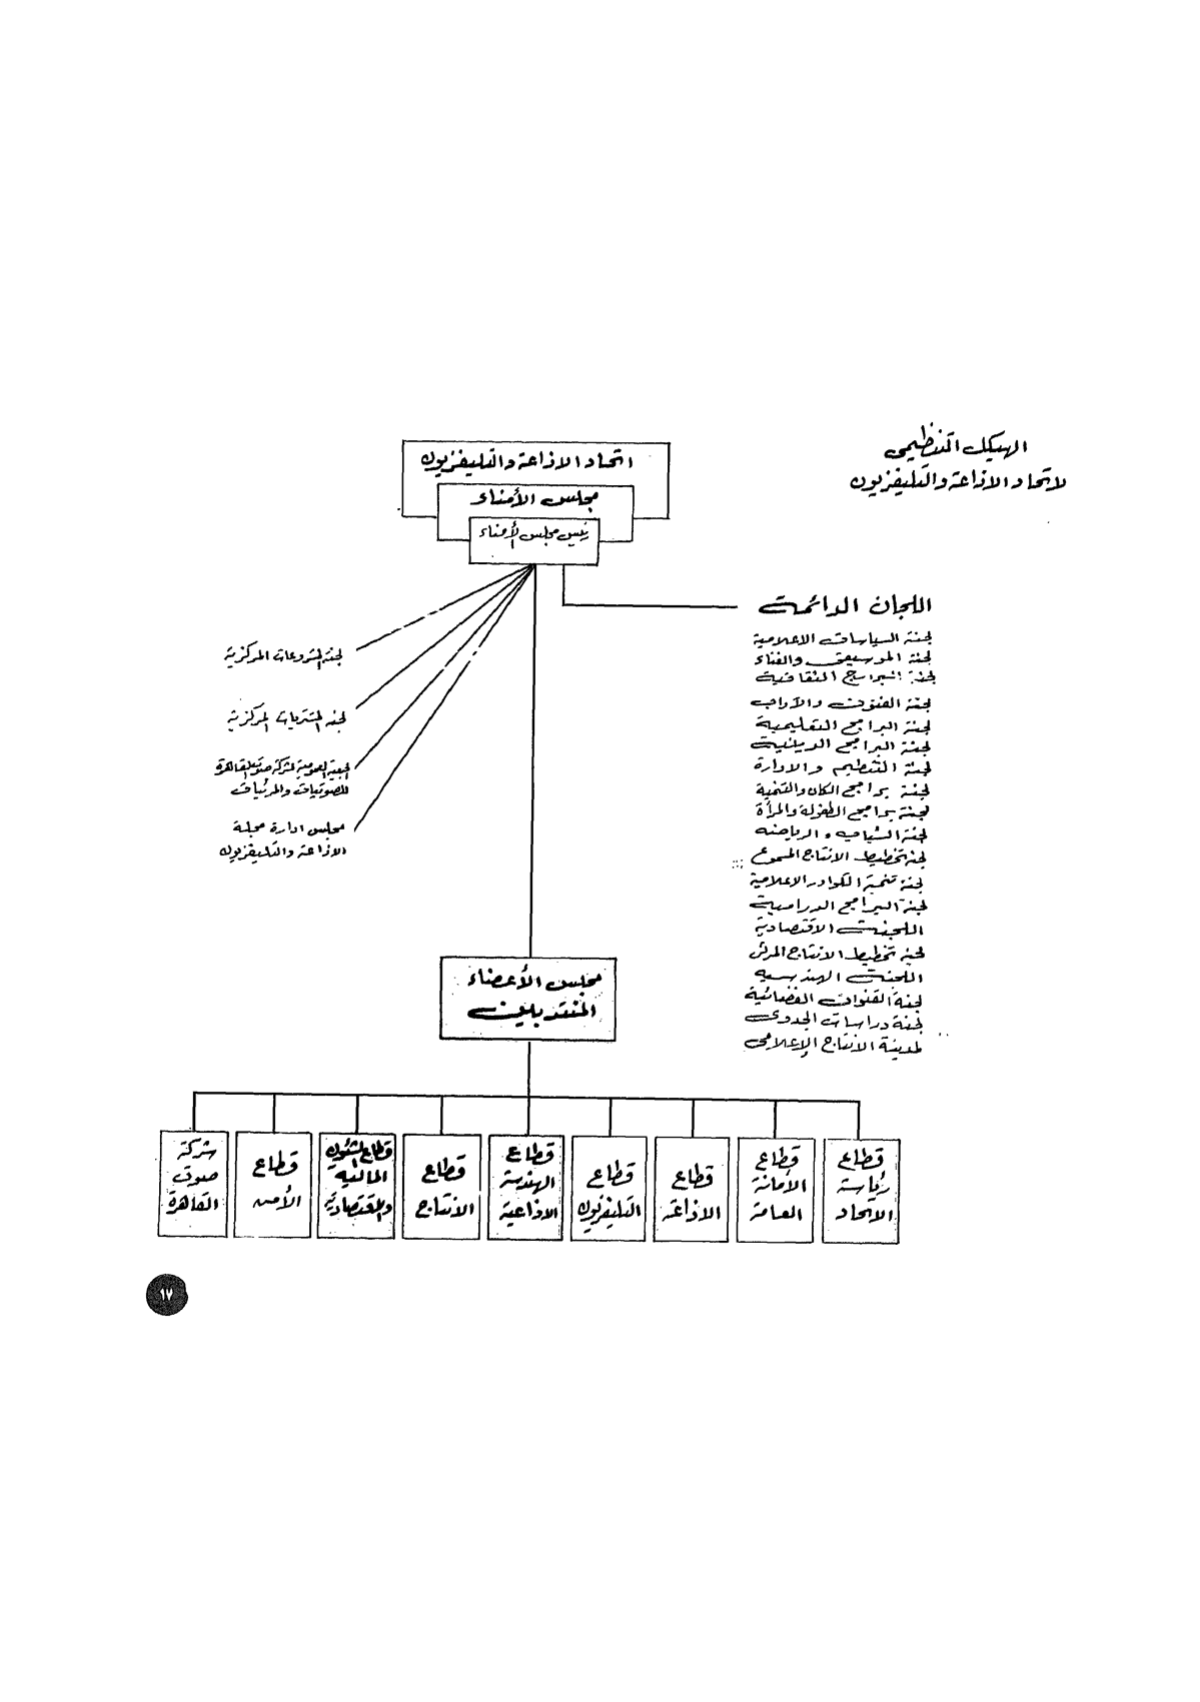 الهيكل التنظيمى
لاتحاد الاذاعة والتليفزيون
اتحاد الاذاعة والتليفزيون
مجلس الأمناء
رئيس مجلس الأمناء
اللجان الدائمة
لجنة السياسات الاعلامية
لجنة الموسيقى والغناء
لجنة البرامج الثقافية
لجنة الفنون والآداب
لجنة البرامج التعليمية
لجنة البرامج الدينية
لجنة التنظيم والادارة
لجنة برامج السكان والتنمية
لجنة برامج الطفولة والمرأة
لجنة الشباب والرياضه
لجنة تخطيط الانتاج المسموع
لجنة تنمية الكوادر الاعلامية
لجنة البرامج الدرامية
اللجنة الاقتصادية
لجنة تخطيط الانتاج المرئى
اللجنة الهندسيه
لجنة القنوات الفضائية
لجنة دراسات الجدوى
لمدينة الانتاج الإعلامى
لجنة المشروعات المركزية
لجنه المشتريات المركزية
الجمعية العمومية لشركة صوت القاهرة
للصوتيات والمرئيات
مجلس ادارة مجلة
الاذاعة والتليفزيون
مجلس الأعضاء
المنتدبين
قطاع
رئاسة
الاتحاد
قطاع
الأمانة
العامة
قطاع
الاذاعة
قطاع
التليفزيون
قطاع
الهندسة
الاذاعية
قطاع
الانتاج
قطاع الشئون
المالية
والاقتصادية
قطاع
الأمن
شركة
صوت
القاهرة
١٧